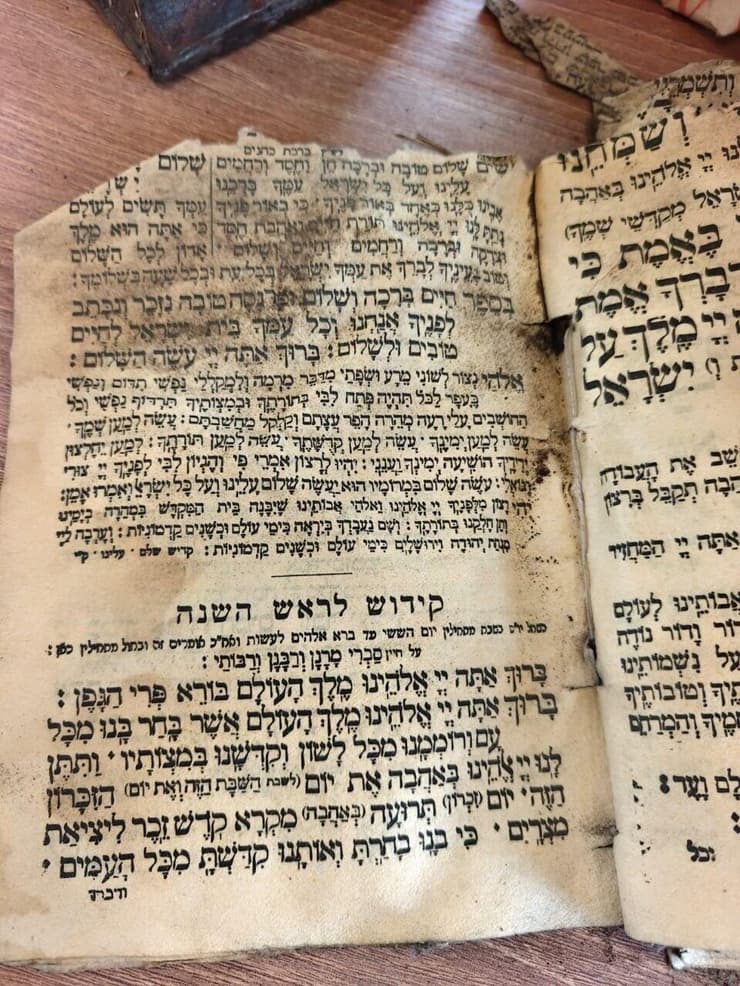 ברכת כהנים
שים שלום טובה וברכה חן וחסד ורחמים
שלום
עלינו ועל כל ישראל עמך ברכנו
אבינו כלנו כאחד באור פניך כי באור פניך
עמך תשים לעולם
נתת לנו יי אלהינו תורת חיים ואהבת חסד
כי אתה הוא מלך
וצדקה וברכה ורחמים וחיים ושלום
אדון לכל השלום
וטוב בעיניך לברך את עמך ישראל בכל עת ובכל שעה בשלומך:
בספר חיים ברכה ושלום ופרנסה טובה נזכר ונכתב
לפניך אנחנו וכל עמך בית ישראל לחיים
טובים ולשלום: ברוך אתה יי עשה השלום:
אלהי נצור לשוני מרע ושפתי מדבר מרמה ולמקללי נפשי תדום ונפשי
כעפר לכל תהיה פתח לבי בתורתך ובמצותיך תרדוף נפשי וכל
החושבים עלי רעה מהרה הפר עצתם וקלקל מחשבתם: עשה למען שמך
עשה למען ימינך עשה למען קדשתך עשה למען תורתך: למען יחלצון
ידידיך הושיעה ימינך וענני: יהיו לרצון אמרי פי והגיון לבי לפניך יי צורי
וגואלי: עשה שלום במרומיו הוא יעשה שלום עלינו ועל כל ישראל ואמרו אמן:
יהי רצון מלפניך יי אלהינו ואלהי אבותינו שיבנה בית המקדש במהרה בימינו
ותן חלקנו בתורתך: ושם נעבדך ביראה כימי עולם וכשנים קדמוניות: וערבה ליי
מנחת יהודה וירושלים כימי עולם וכשנים קדמוניות: קדיש שלם עלינו ק"י
קידוש לראש השנה
כשחל יו"ט בשבת מתחילין יום הששי עד ברא אלהים לעשות ואח"כ אומרים זה ובחול מתחילין כאן:
על היין סברי מרנן ורבנן ורבותי:
בָּרוּךְ אַתָּה יְיָ אֱלֹהֵינוּ מֶלֶךְ הָעוֹלָם בּוֹרֵא פְּרִי הַגָּפֶן:
בָּרוּךְ אַתָּה יְיָ אֱלֹהֵינוּ מֶלֶךְ הָעוֹלָם אֲשֶׁר בָּחַר בָּנוּ מִכָּל
עָם וְרוֹמְמָנוּ מִכָּל לָשׁוֹן וְקִדְּשָׁנוּ בְּמִצְוֹתָיו וַתִּתֶּן
לָנוּ יְיָ אֱלֹהֵינוּ בְּאַהֲבָה אֶת יוֹם (לשבת הַשַּׁבָּת הַזֶּה וְאֶת יוֹם) הַזִּכָּרוֹן
הַזֶּה יוֹם (זִכְרוֹן) תְּרוּעָה (בְּאַהֲבָה) מִקְרָא קֹדֶשׁ זֵכֶר לִיצִיאַת
מִצְרָיִם כִּי בָנוּ בָחַרְתָּ וְאוֹתָנוּ קִדַּשְׁתָּ מִכָּל הָעַמִּים
ודברך
ושמחנו
יי אלהינו באהבה
מקדשי שמך)
באמת כי
ודברך אמת
יי מלך על
ישראל
את העבודה
תקבל ברצון
אתה יי המחזיר
אבותינו לעולם
דור ודור נודה
ועל נשמותינו
וטובותיך
והמרחם
ועד:
וכל